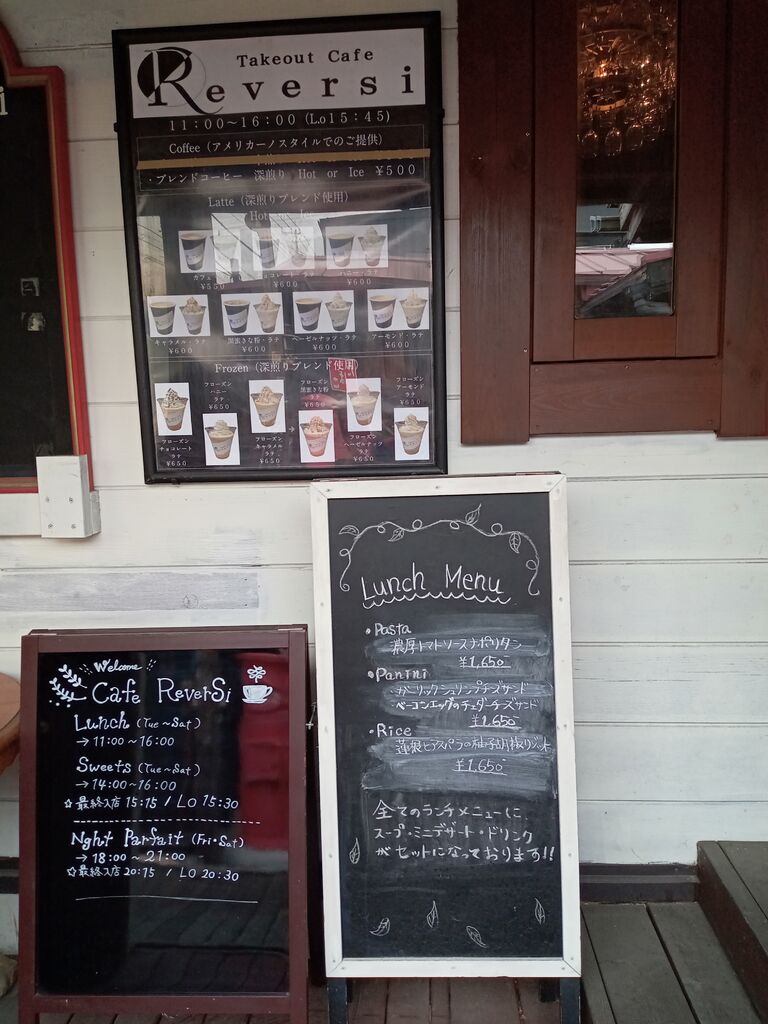 Takeout Cafe
Reversi
11:00～16:00 (Lo15:45)
Coffee (アメリカーノスタイルでのご提供)
・ブレンドコーヒー 深煎り Hot or Ice ¥500
Latte (深煎りブレンド使用)
Hot or Ice
¥550
¥600
ハニー・ラテ
¥600
キャラメル・ラテ
¥600
黒蜜きな粉・ラテ
¥600
ヘーゼルナッツ・ラテ
¥600
アーモンド・ラテ
¥600
Frozen (深煎りブレンド使用)
フローズン
チョコレート
ラテ
¥650
フローズン
ハニー
ラテ
¥650
フローズン
キャラメル
ラテ
¥650
フローズン
黒蜜きな粉
ラテ
¥650
フローズン
ヘーゼルナッツ
ラテ
¥650
フローズン
アーモンド
ラテ
¥650
Welcome
Cafe ReverSi
Lunch (Tue～Sat)
→11:00～16:00
Sweets (Tue～Sat)
→14:00～16:00
☆最終入店 15:15 / LO 15:30
Night Parfait (Fri・Sat)
→18:00～21:00
☆最終入店 20:15 / LO 20:30
Lunch Menu
・Pasta
濃厚トマトソースナポリタン
¥1,650
・Panini
・ガーリックシュリンプチーズサンド
・ベーコンエッグのチェダーチーズサンド
¥1,650
・Rice
蓮根とアスパラの柚子胡椒リゾット
¥1,650
全てのランチメニューに
スープ・ミニデザート・ドリンク
がセットになっております!!